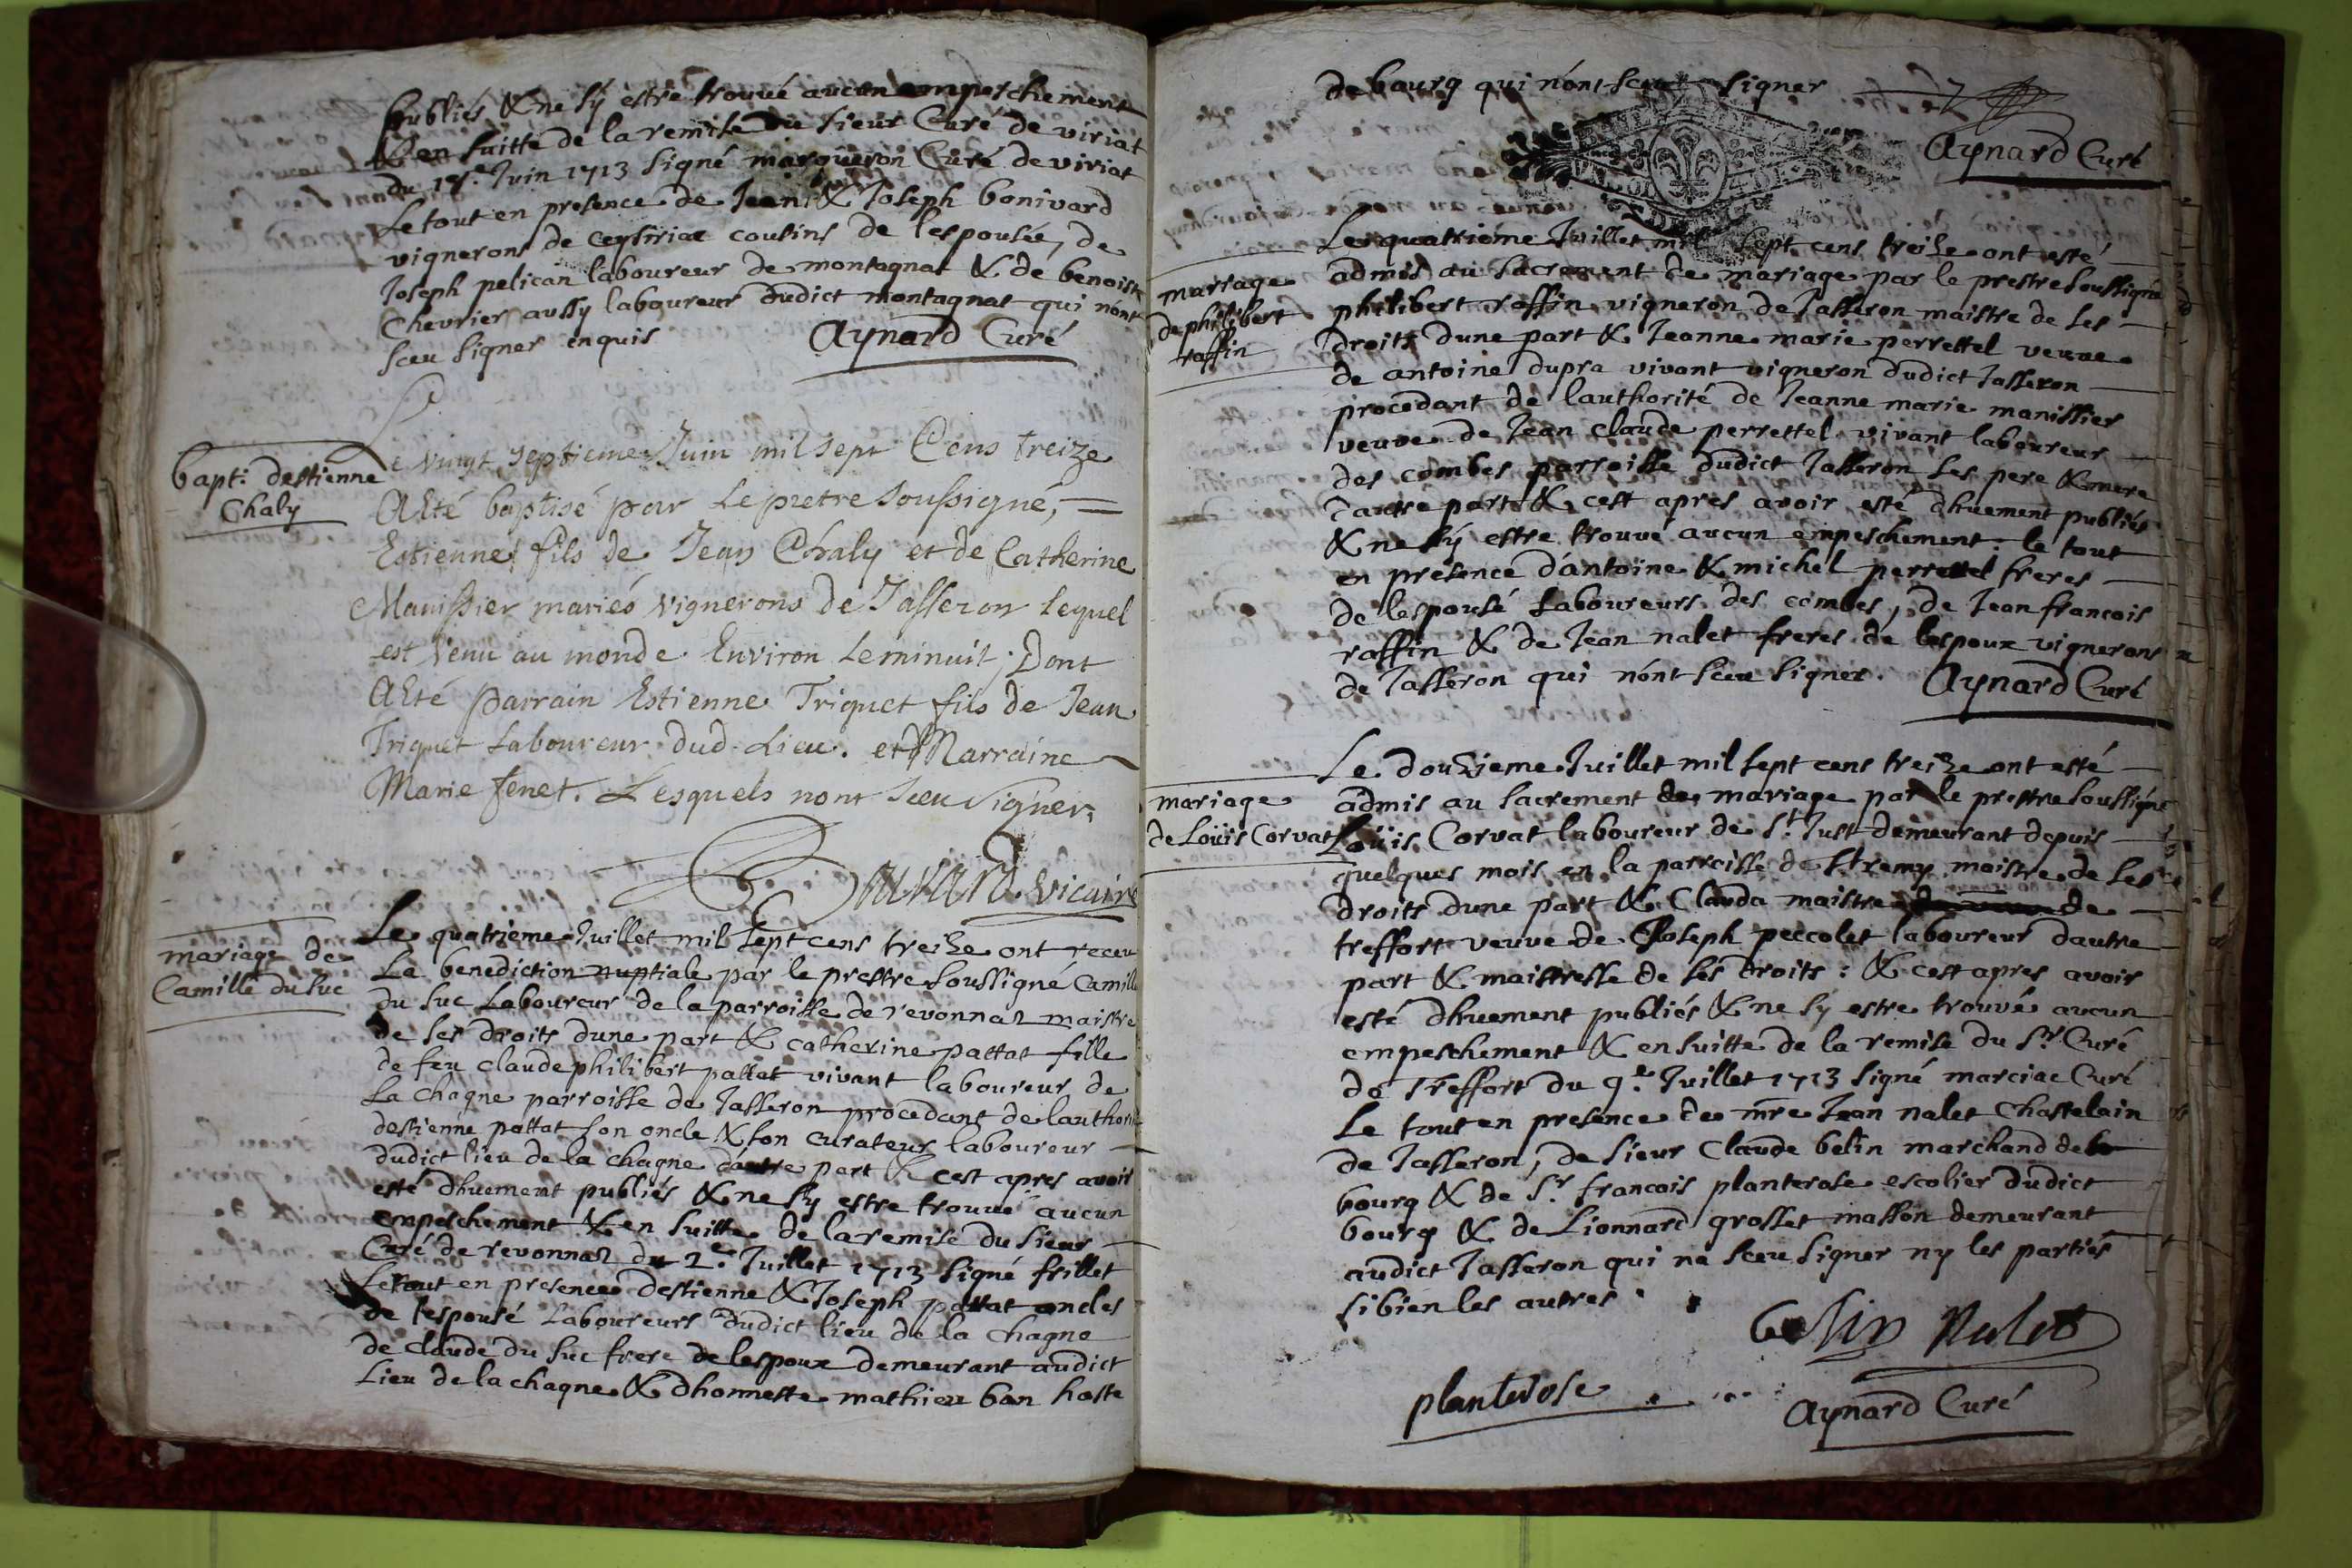 publiés & ne sÿ estre trouvé aucun empeschement
& en suitte de la remise du sieur Curé de viriat
du 17.e Juin 1713 signé margueron Curé de viriat
Le tout en presence de Jean & Joseph bonivard
vignerons de ceysiriat cousins de lespousée, de
Joseph pelican laboureur de montagnat & de benoist
Chevrier aussy laboureur dudict montagnat qui n'ont
sceu signer enquis
Aynard Curé
bapt: destienne
Chaly
Le vingt septieme Juin mil sept Cens treize
A Eté baptisé par Le pretre soussigné,
Estienne fils de Jean Chaly et de Catherine
Manissier mariés vignerons de Jasseron lequel
est venu au monde Environ le minuit; Dont
A Eté parrain Estienne Triquet fils de Jean
Triquet Laboureur dud. Lieu. et Marraine
Marie fenet. Lesquels nont sceu signer.
vicaire
mariage de
Camille du suc
Le quatrieme Juillet mil sept cens treize ont receu
La benediction nuptiale par le prestre soussigné Camille
du suc Laboureur de la parroisse de revonnaz maistre
de ses droits dune part & catherine pattat fille
de feu claude philibert pattat vivant laboureur de
La chagne parroisse de Jasseron procedant de lauthorité
destienne pattat son oncle & son curateur laboureur
dudict lieu de la chagne d'autre part & cest apres avoir
esté dhuement publiés & ne sÿ estre trouvé aucun
empeschement & en suitte de la remise du sieur
Curé de revonnaz du 2.e Juillet 1713 signé frillet
Le tout en presence destienne & Joseph pattat oncles
de lespousé Laboureurs dudict lieu de la chagne
de claude du suc frere de lespoux demeurant audict
Lieu de la chagne & dhonneste mathieu bon hoste
de bourg qui n'ont sceu signer
Aynard Curé
mariage
de philibert
raffin
Le quatrieme Juillet mil sept cens treize ont esté
admis au sacrement de mariage par le prestre soussigné
philibert raffin vigneron de Jasseron maistre de ses
droits dune part & Jeanne marie perrettel veuve
de antoine dupra vivant vigneron dudict Jasseron
procedant de lauthorité de Jeanne marie manissier
veuve de Jean claude perrettel vivant laboureur
des combes parroisse dudict Jasseron ses pere & mere
d'autre part & cest apres avoir esté dhuement publiés
& ne sÿ estre trouvé aucun empeschement. le tout
en presence d'antoine & michel perrettel freres
de lespousé Laboureurs des combes, de Jean francois
raffin & de Jean nalet freres de lespoux vignerons
de Jasseron qui n'ont sceu signer.
Aynard Curé
mariage
de Loüis Corvat
Le douzieme Juillet mil sept cens treize ont esté
admis au sacrement de mariage par le prestre soussigné
Loüis Corvat laboureur de St. Just demeurant depuis
quelques mois en la parroisse de St. remy maistre de ses
droits dune part & Clauda maistre de
treffort veuve de Joseph peccolet laboureur dautre
part & maistresse de ses droits: & cest apres avoir
esté dhuement publiés & ne sy estre trouvé aucun
empeschement & en suitte de la remise du Sr. Curé
de Treffort du 9.e Juillet 1713 signé marciac Curé
Le tout en presence de mre Jean nalet Chastelain
de Jasseron, de sieur Claude belin marchand de
bourg & de Sr. francois planterose escolier dudict
bourg & de Lionnard grosset masson demeurant
audict Jasseron qui na sceu signer ny les parties
si bien les autres
belin Nalet
planterose
Aynard Curé